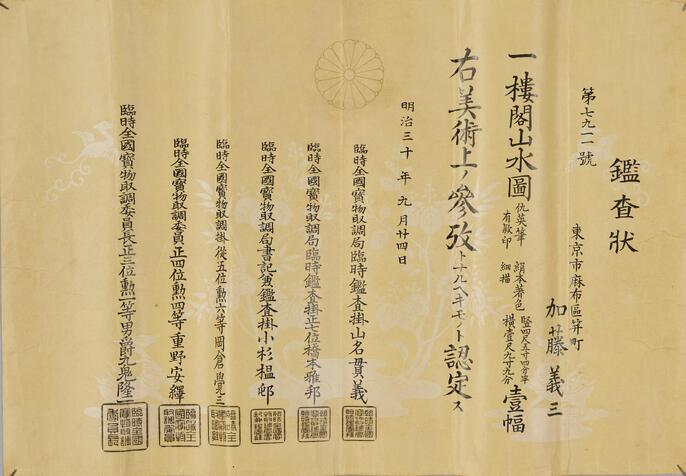 鑑査狀
第七九一一號
東京市麻布區笄町
加藤義三
一樓閣山水圖
仇英筆
有款印
絹本著色
細描
竪四尺五寸四分半
橫壹尺九寸九分
壹幅
右美術上ノ參攷トナルヘキモノト認定ス
明治三十年九月廿四日
臨時全國寶物取調局臨時鑑査掛山名貫義
臨時全國寶物取調局臨時鑑査掛正七位橋本雅邦
臨時全國寶物取調局書記兼鑑査掛小杉榲邨
臨時全國寶物取調掛從五位勲六等岡倉覺三
臨時全國寶物取調委員正四位勲四等重野安繹
臨時全國寶物取調委員長正三位勲一等男爵九鬼隆一